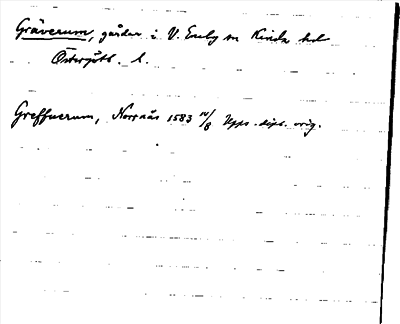 Gräverum, gårdar i V. Eneby sn Kinda hd
Östergötl. l.
Greffuerum, Norrnäs 1583 IV/8 Upps. dipl. orig.